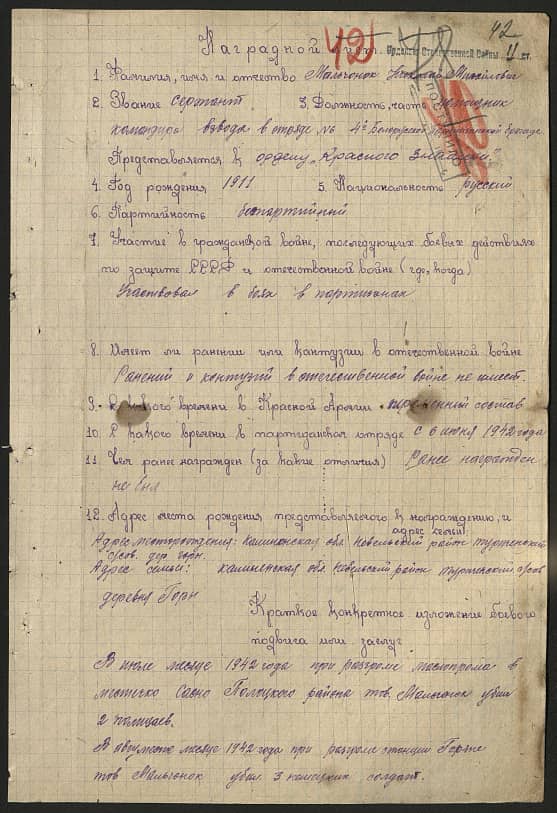 42
42
Наградной лист. Орденом Отечественной Войны II ст.
1. Фамилия, имя и отчество Мальчонок Михайлович
2. Звание сержант 3. Должность, часть помощник
командира взвода в отряде №6 4й Белорусской партизанской бригаде
Представляется к ордену "Красного Знамени"
4. Год рождения 1911 5. Национальность русский
6. Партийность беспартийный
7. Участие в гражданской войне, последующих боевых действиях
по защите СССР и отечественной войне (где, когда)
Участвовал в боях в партизанах
8. Имеет ли ранении или контузии в отечественной войне
Ранений и контузий в отечественной войне не имеет.
9. С какого времени в Красной Армии переменный состав
10. С какого времени в партизанском отряде с 6 июня 1942 года
11. Чем ранее награжден (за какие отличия) Ранее награжден
не был
12. Адрес места рождения представляемого к награждению, и
адрес семьи
Адрес месторождения: Калининская обл. Невельский район Туричинский
с/сов. дер. Горы
Адрес семьи: Калининская обл. Невельский район Туричинский с/сов
деревня Горы
Краткое конкретное изложение боевого
подвига или заслуг
В июле месяце 1942 года при разгроме маслопрома в
местечко Сосно Полоцкого района тов. Мальчонок убил
2 полицаев.
В августе месяце 1942 года при разгроме станции
тов Мальчонок убил 3 немецких солдат.